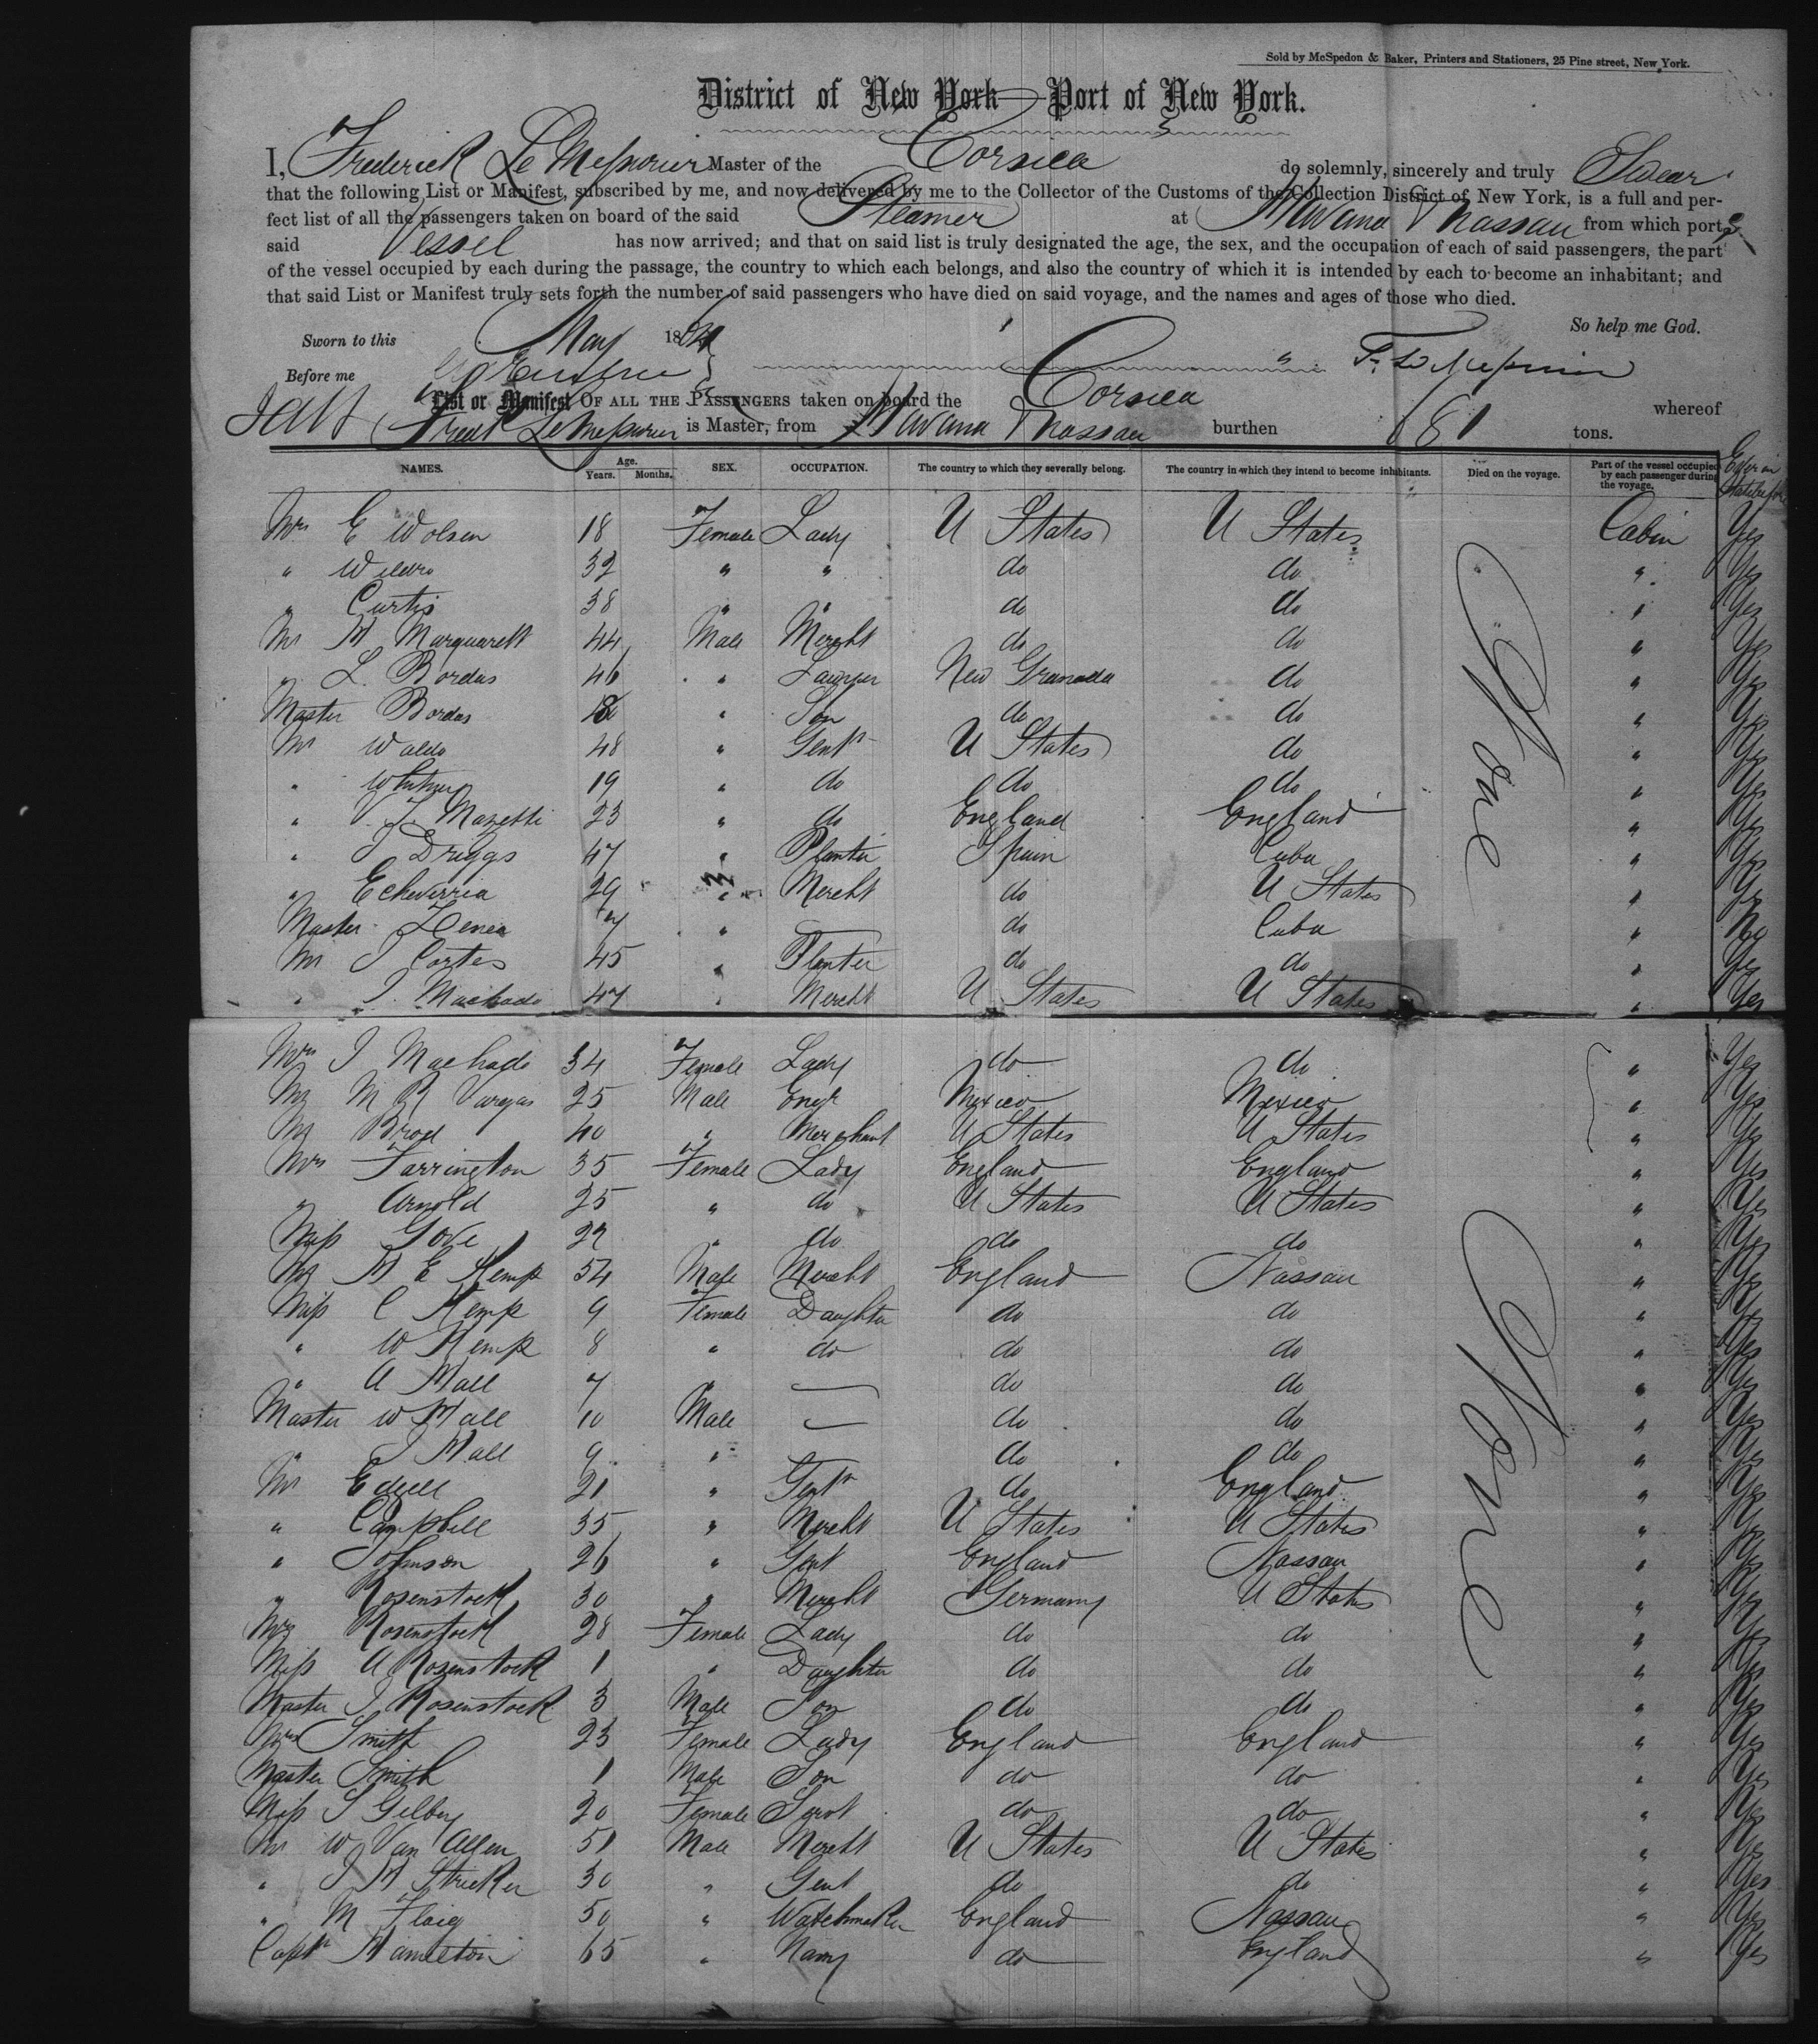 Sold by McSpedon & Baker, Printers and Stationers, 25 Pine street, New York.
District of New York—Port of New York.
I, Frederick Le Messurier Master of the Corsica do solemnly, sincerely and truly Swear
that the following List or Manifest, subscribed by me, and now delivered by me to the Collector of the Customs of the Collection District of New York, is a full and per-
fect list of all the passengers taken on board of the said Steamer at Havana & Nassau from which ports
said Vessel has now arrived; and that on said list is truly designated the age, the sex, and the occupation of each of said passengers, the part
of the vessel occupied by each during the passage, the country to which each belongs, and also the country of which it is intended by each to become an inhabitant; and
that said List or Manifest truly sets forth the number of said passengers who have died on said voyage, and the names and ages of those who died.
So help me God.
Sworn to this May 1864
Before me F. Le Messurier
List or Manifest OF ALL THE PASSENGERS taken on board the Corsica whereof
Fredk Le Messurier is Master, from Havana & Nassau burthen 681 tons.
NAMES. Age. Years. Months. SEX. OCCUPATION. The country to which they severally belong. The country in which they intend to become inhabitants. Died on the voyage. Part of the vessel occupied by each passenger during the voyage.
Mrs E Wolsen 18 Female Lady U States U States Cabin Yes
" 32 " " do do " Yes
" Curtis 38 " " do do " Yes
Mr H Marquarett 44 Male Mercht do do " Yes
" L. Bordas 46 " Lawyer New Granada do " Yes
Master Bordas " Son do do " Yes
Mr Waldo 48 " Gentn U States do " Yes
" Whitney 19 " do do do " Yes
" V. J. Mazetti 23 " do England England " Yes
" J Driggs 47 " Planter Spain Cuba " Yes
" Echeverria 29 " Mercht do U States " Yes
Master Zenea 7 " do Cuba " No
Mr J Cortes 45 " Planter do do " Yes
" J. Machado 47 " Mercht U States U States " Yes
None
Mrs J Machado 34 Female Lady do do " Yes
Mr M R Vargas 25 Male Engr Mexico Mexico " Yes
Mr Brod 40 " Merchant U States U States " Yes
Mrs Farrington 35 Female Lady England England " Yes
" Arnold 25 " do U States U States " Yes
Miss Gove 22 " do do do " Yes
Mr H E Kemp 54 Male Mercht England Nassau " Yes
Miss C Kemp 9 Female Daughter do do " Yes
" W Kemp 8 " do do do " Yes
" A Hall 7 " — do do " Yes
Master W Hall 10 Male — do do " Yes
" J Hall 9 " do do " Yes
Mr Edzell 21 " Gentn do England " Yes
" Campbell 35 " Mercht U States U States " Yes
" Johnson 26 " Gent England Nassau " Yes
" Rosenstock 30 " Mercht Germany U States " Yes
Mrs Rosenstock 28 Female Lady do do " Yes
Miss A Rosenstock 1 " Daughter do do " Yes
Master J Rosenstock 3 Male Son do do " Yes
Mrs Smith 23 Female Lady England England " Yes
Master Smith 1 Male Son do do " Yes
Miss S Gilbey 20 Female Servt do do " Yes
Mr W Van Allen 51 Male Mercht U States U States " Yes
" J H Stricker 30 " Gent do do " Yes
" M Flaig 50 " Watchmaker England Nassau " Yes
Captn Hamilton 65 " Navy do England " Yes
None